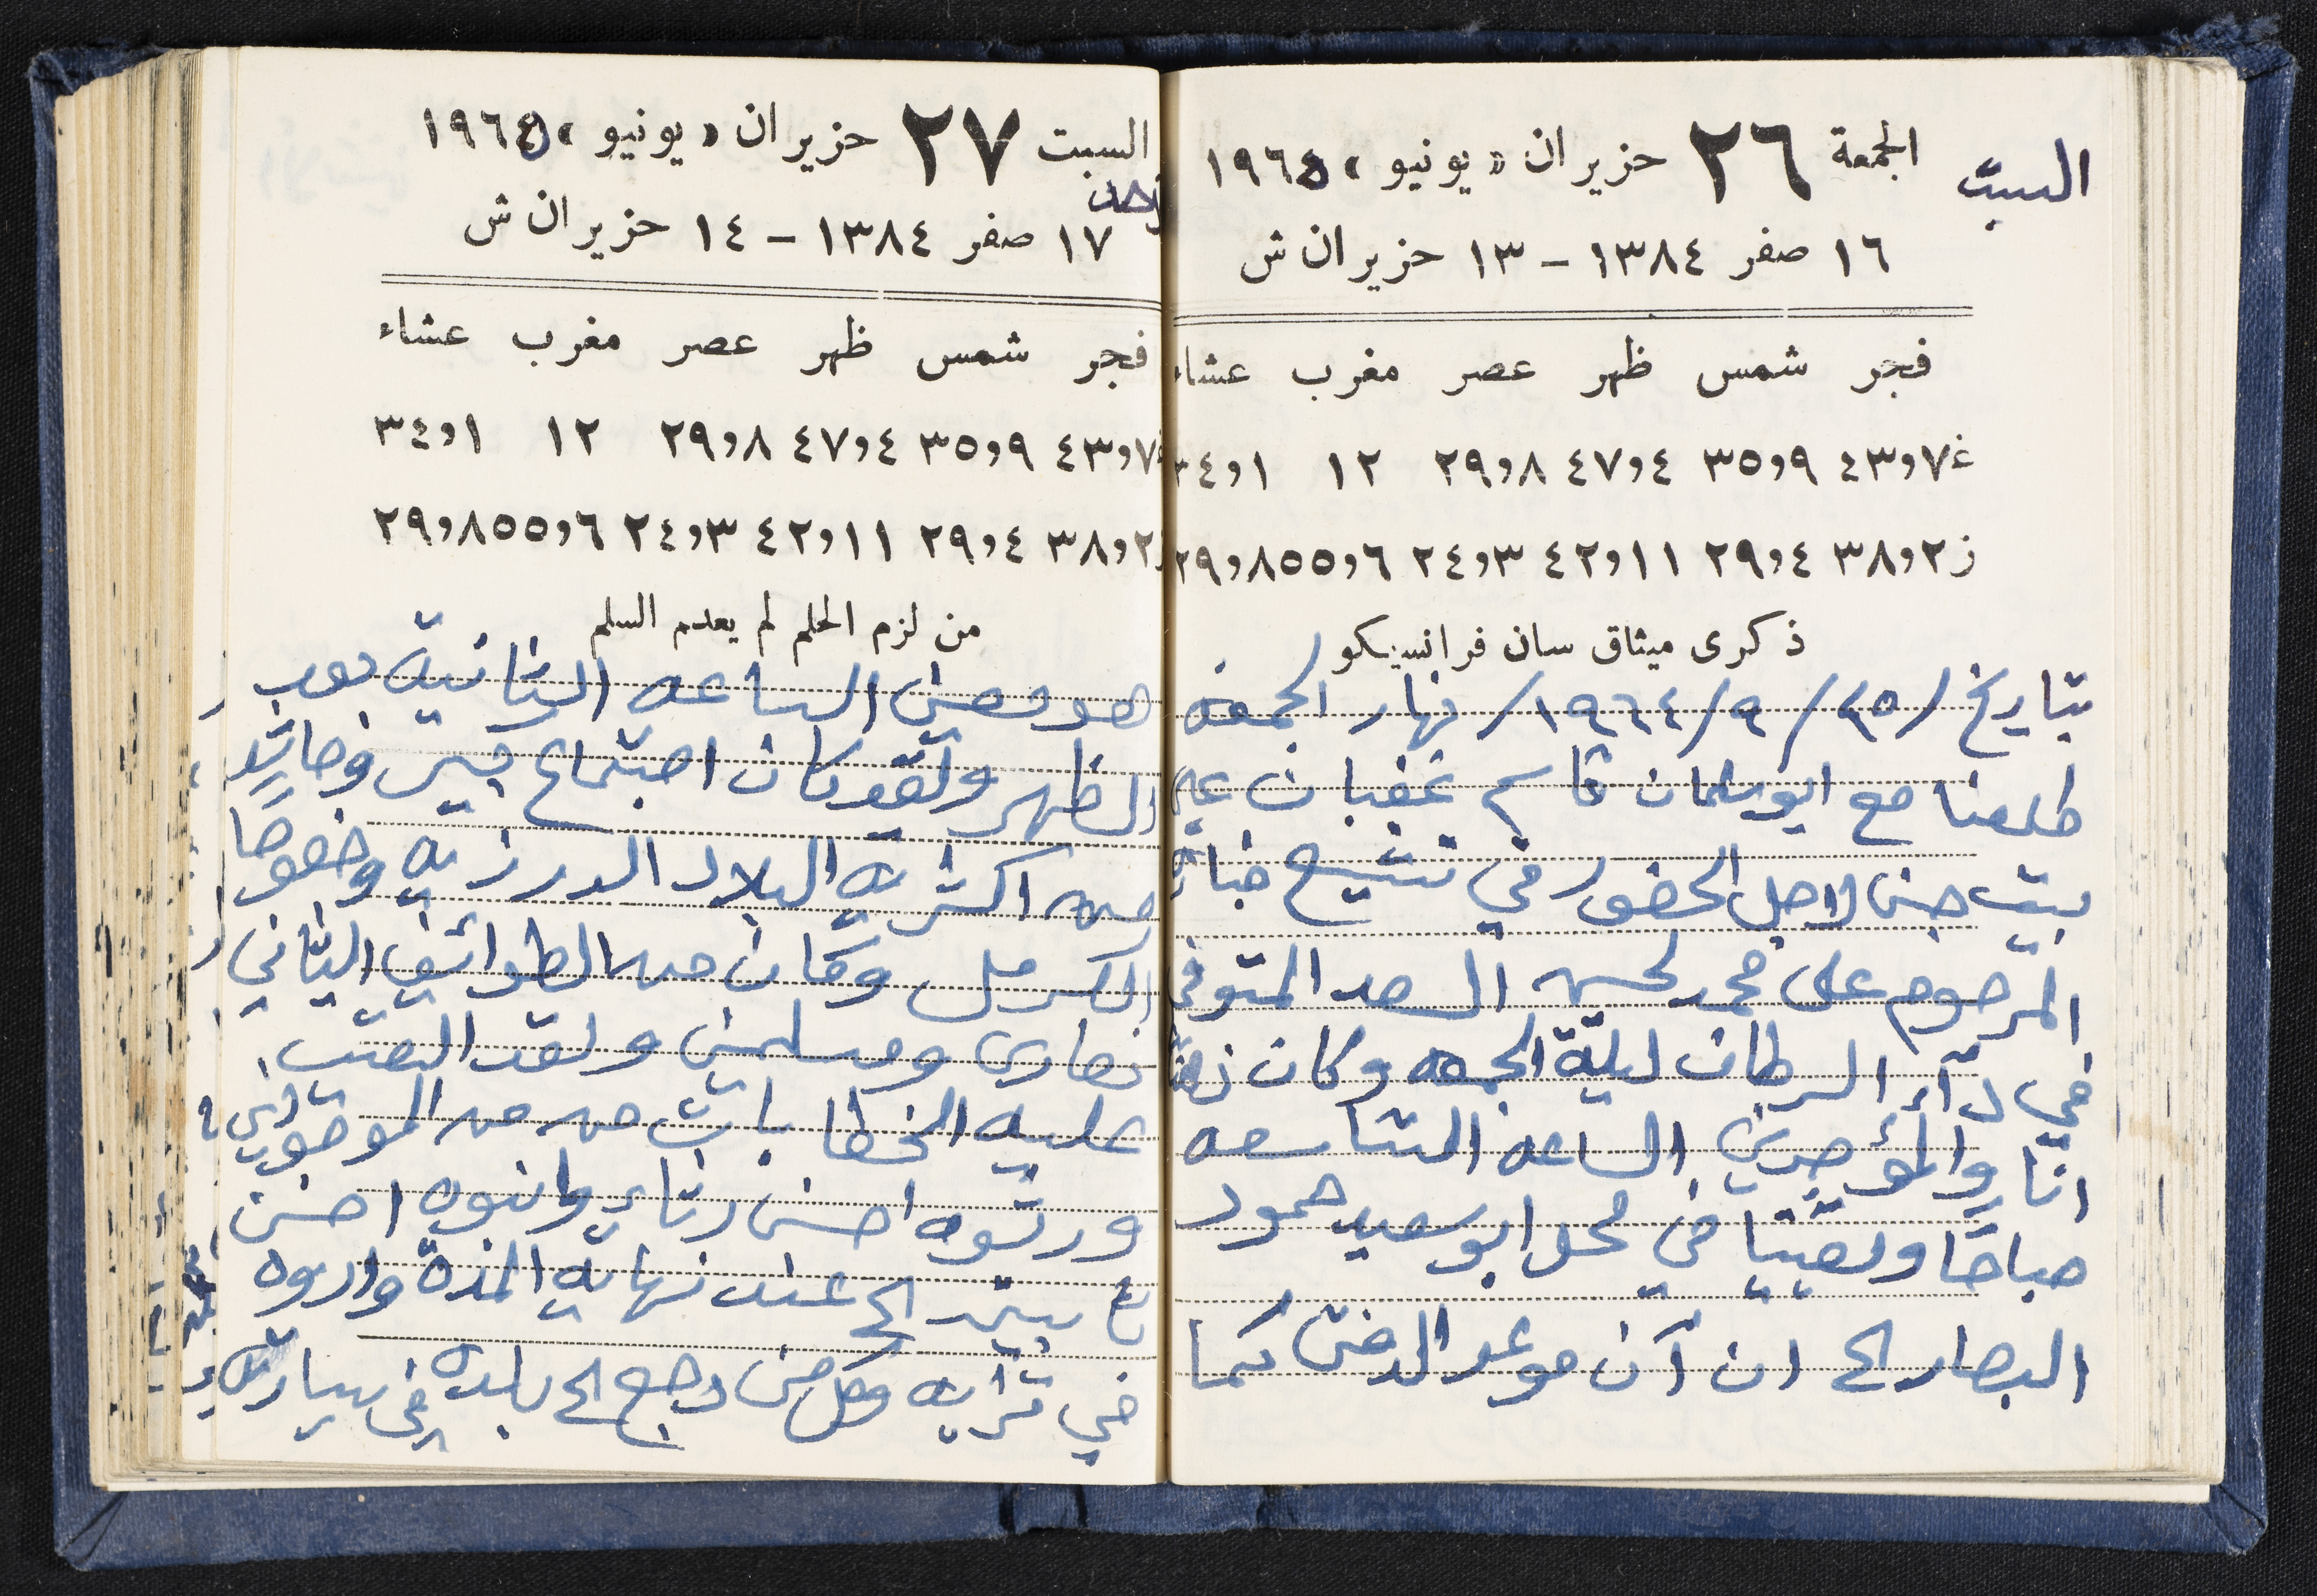 السبت
الجمعة ٢٦ حزيران «يونيو» ١٩٦٥
١٦ صفر ١٣٨٤ - ١٣ حزيران ش
فجر شمس ظهر عصر مغرب عشاء
غ ٧و٤٣ ٩و٣٥ ٤و٤٧ ٨و٢٩ ١٢ ١و٣٤
ز ٢و٣٨ ٤و٢٩ ١١و٤٢ ٣و٢٤ ٦و٥٥ ٨و٢٩
ذكرى ميثاق سان فرانسيسكو
بتاريخ /٢٥/٩/١٩٦٤/ نهار الجمعه
طلعنا مع ابو سلمان قاسم غضبان على
بيت جن لاجل الحضور في تشيح جنازة
المرحوم على محمد لحسن المتوفي
في دآء السرطان ليلة الجمعه وكان
انا والمؤجرين الساعه التاسعه
صباحًا وبقينا في محل ابو سعيد حمود
البصار الى ان آن موعد الدفن كما
السبت ٢٧ حزيران «يونيو» ١٩٦٥
الاحد
١٧ صفر ١٣٨٤ - ١٤ حزيران ش
فجر شمس ظهر عصر مغرب عشاء
٧و٤٣ ٩و٣٥ ٤و٤٧ ٨و٢٩ ١٢ ١و٣٤
ز ٢و٣٨ ٤و٢٩ ١١و٤٢ ٣و٢٤ ٦و٥٥ ٨و٢٩
من لزم الحلم لم يعدم السلم
هو معين الساعه الثانيه بعد
الظهر ولقد كان اجتماع كبير وحاشد
من اكثريه البلاد الدرزيه وخصوصًا
الكرمل وكان من الطوائف الثاني
نصارى ومسلمين ولقد القيت
عليه الخطابات من الموجودين
ورثوه احسن رثاء وابنوه احسن
تابين الى عند نهاية المدة واروه
في ترابه وكل من رجع الى بلده في سيارته